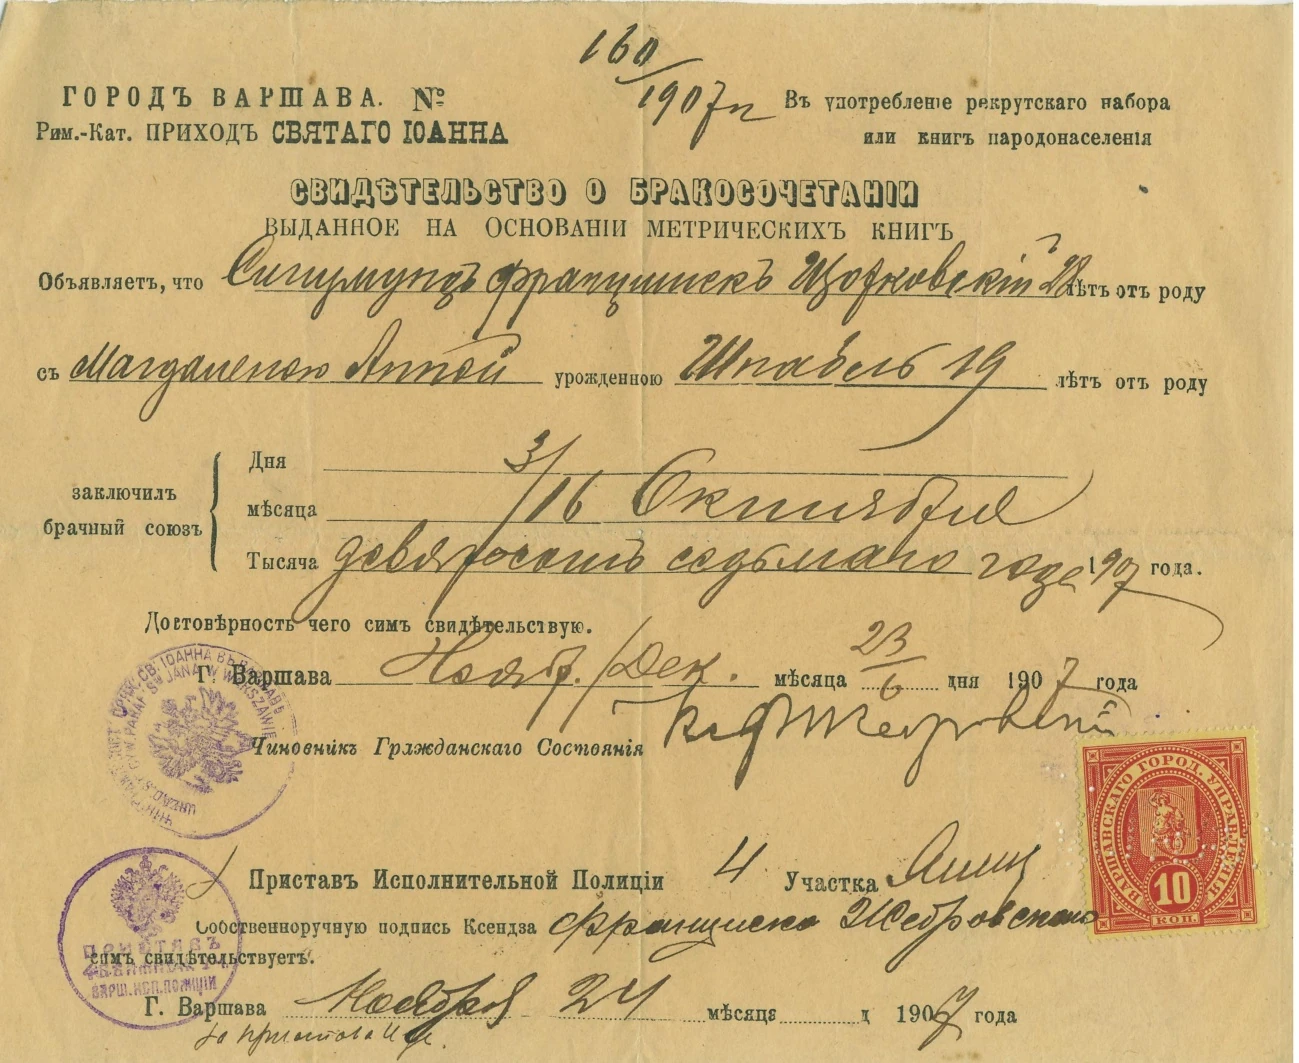 160
/1907 г
ГОРОДЪ ВАРШАВА. №
Рим.-Кат. ПРИХОДЪ СВЯТАГО ІОАННА
Въ употребленіе рекрутскаго набора
или книгъ народонаселенія
СВИДѢТЕЛЬСТВО О БРАКОСОЧЕТАНІИ
ВЫДАННОЕ НА ОСНОВАНІИ МЕТРИЧЕСКИХЪ КНИГЪ
Объявляетъ, что Сигизмундъ Францискъ 28 лѣтъ отъ роду
съ Магдаленою Анной урожденною Шнабель 19 лѣтъ отъ роду
заключилъ брачный союзъ
Дня 3/16
мѣсяца Октября
Тысяча девятьсотъ седьмаго года 1907 года.
Достовѣрность чего симъ свидѣтельствую.
Г. Варшава Нояб./Дек. мѣсяца 23/6 дня 1907 года
Чиновникъ Гражданскаго Состоянія
Приставъ Исполнительной Полиціи 4 Участка
Собственноручную подпись Ксендза Франциска Жебровскаго
симъ свидѣтельствуетъ.
Г. Варшава Ноября 24 мѣсяца д 1907 года
За Пристава
СВ. ІОАННА ВЪ ВАРШАВѢ
ŚW JANA W WARSZAWIE
ПРИСТАВЪ
ВАРШ. ИСП. ПОЛИЦІИ
ВАРШАВСКАГО ГОРОД. УПРАВЛЕНІЯ
10
КОП.